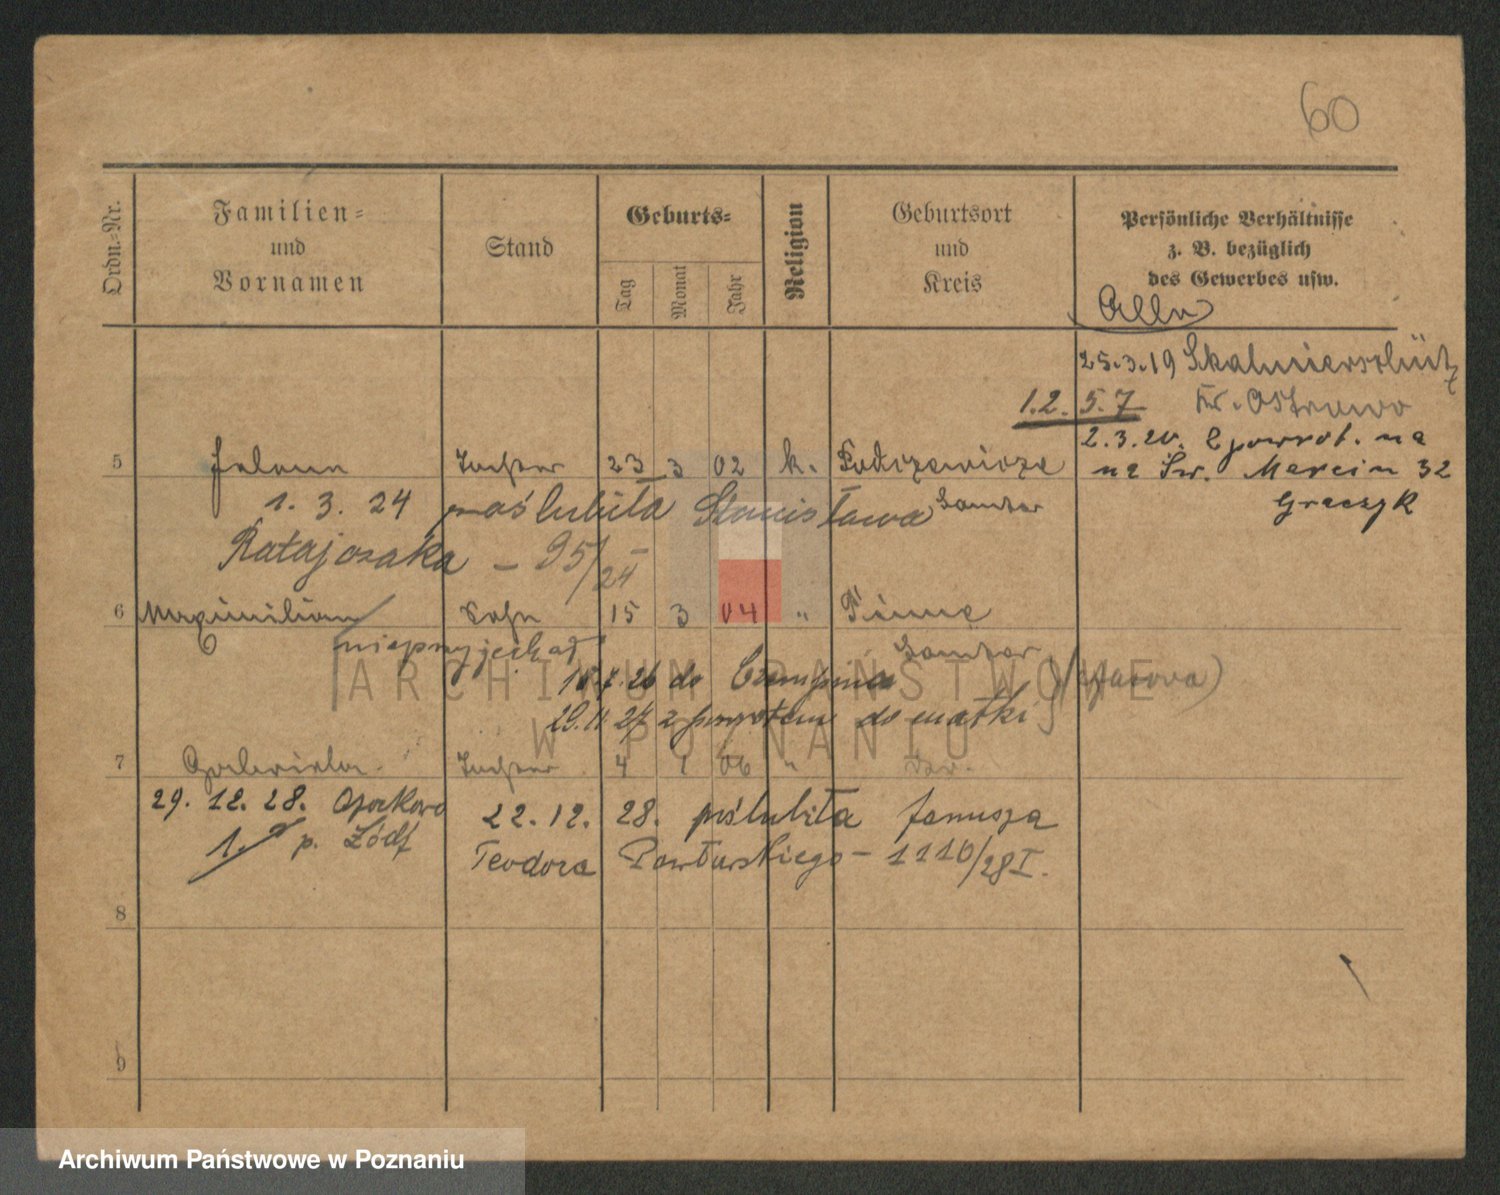 60
Ordn.-Nr.
Familien-
und
Vornamen
Stand
Geburts-
Tag
Monat
Jahr
Religion
Geburtsort
und
Kreis
Persönliche Verhältnisse
z. B. bezüglich
des Gewerbes usw.
25.3.19
1.2. 5.7
Kr. Ostrowo
2.3.20. Z powrot. na
5 Helene Tochter 23 3 02 k.
na Św. Marcin 32
Graczyk
1. 3. 24 poślubiła Stanisława Samter
Ratajczaka – 95/24 I
6 Maximilian Sohn 15 3 04 " Pinne
nieprzyjechał Samter
26 do Czempinia
29.11.27 z powrotem do matki
ARCHIWUM PAŃSTWOWE
W POZNANIU
7 Tochter 4 1 06 "
29. 12. 28. 22. 12. 28. poślubiła Janusza
p. Łódź
Teodora – 1110/28 I.
8
9
Archiwum Państwowe w Poznaniu